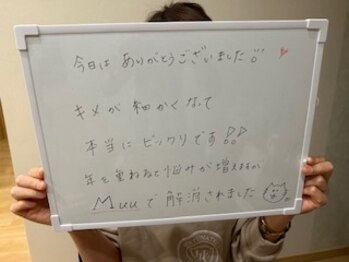 今日は ありがとうございました!!
キメが細かくなって
本当にビックリです!!
年を重ねると悩みが増えるが
Muuで解消されました